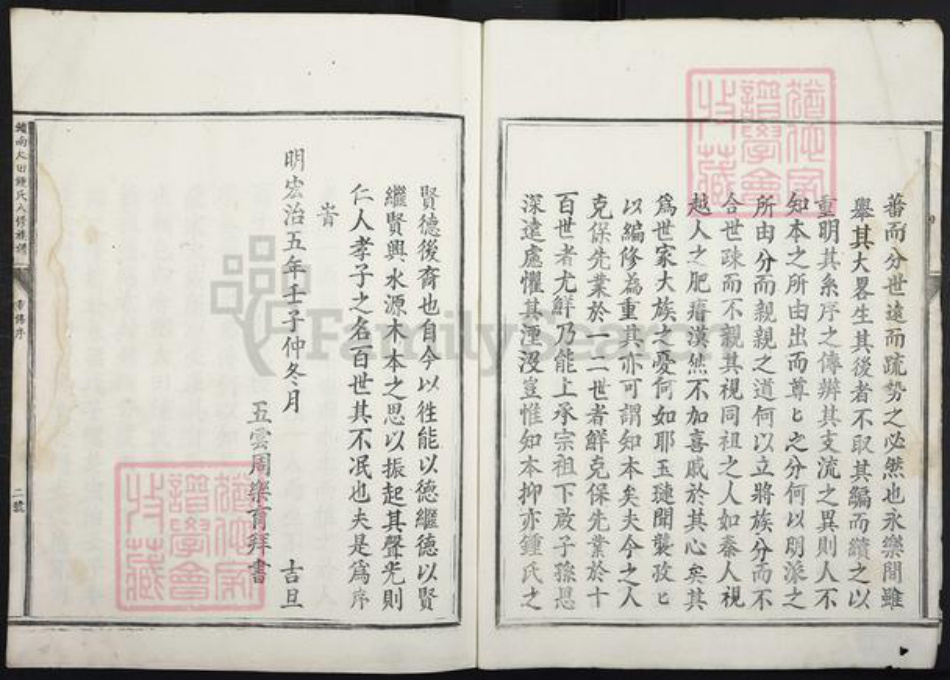 蕃而分世遠而疏勢之必然也永樂間雖
舉其大畧生其後者不取其編而續之以
重明其系序之傳辨其支流之異則人不
知本之所由出而尊匕之分何以明派之
所由分而親親之道何以立將族分而不
合世疎而不親其視同祖之人如秦人視
越人之肥瘠漠然不加喜戚於其心矣其
爲世家大族之憂何如耶玉璉聞襲孜匕
以編修為重其亦可謂知本矣夫今之人
克保先業於一二世者鮮克保先業於十
百世者尤鮮乃能上承宗祖下啟子孫思
深遠慮懼其湮沒豈惟知本抑亦鍾氏之
賢德後裔也自今以徃能以德繼德以賢
繼賢興水源木本之思以振起其聲光則
仁人孝子之名百世其不泯也夫是爲序
旹
明宏治五年壬子仲冬月 吉旦
五雲周樂育拜書
贛南大田鍾氏八修族譜
舊序
二號
譜學會
收藏
譜學會
收藏
FamilySearch